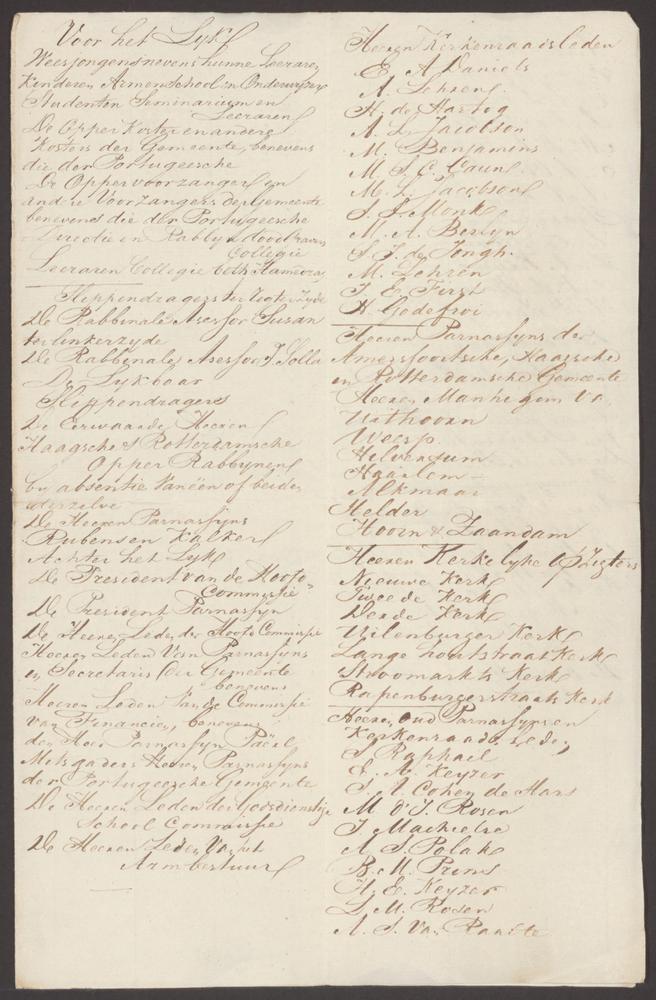 Voor het Lyk
Weesjongens nevens hunne Leeraren
Kinderen Armenschool en Onderwyzers
Studenten Seminarium en
Leeraren
De Opper Koster en andere
Kosters der Gemeente, benevens
die der Portugeesche
De Oppervoorzanger en
andere Voorzangers der Gemeente
benevens die der Portugeesche
Directie en Rabbyn doodgravers
Collegie
Leeraren Collegie beth Hamidras
Slippendragers ter regter zyde
De Rabbinale Assessor Susan
ter linkerzyde
De Rabbinale Assessor J. Solla
De Lykbaar
Slippendragers
De Eerwaarde Heeren
Haagsche & Rotterdamsche
Opper Rabbynen
by absentie van één of beide
derzelve
De Heeren Parnassyns
Rubens en Kalker
Achter het Lyk
De President van de Hoofd-
Commissie
De President Parnassyn
De Heeren Leden der Hoofd Commissie
Heeren Leden Van Parnassyns
en Secretaris der Gemeente
benevens
Heeren Leden Van de Commissie
van Financien, benevens
den Heer Parnassyn Pacel
Mitsgaders Heeren Parnassyns
der Portugeesche Gemeente
De Heeren Leden der Godsdienstige
School Commissie
De Heeren Leden Van het
Armbestuur
Heeren Kerkenraadsleden
E. A. Daniels
A. Lehren
H. de Hartog
A. L. Jacobson
M. Benjamins
M. S. C.
M. L. Jacobson
S. J. Monk
M. A. Berlyn
S. J. de Jongh
M. Lehren
J. E. Furst
H. Godefroi
Heeren Parnassyns der
Amersfoortsche, Haagsche
en Rotterdamsche Gemeente
Heeren Manhigem Va
Uithoorn
Weesp
Hilversum
Haarlem
Alkmaar
Helder
Hoorn & Zaandam
Heeren Kerkelyke Opzigters
Nieuwe Kerk
Tweede Kerk
Derde Kerk
Uilenburger Kerk
Lange houtstraat Kerk
Stroomarkts Kerk
Rapenburgerstraats Kerk
Heeren, Oud Parnassyns en
Kerkenraads Leden
S. Raphael
E. A. Keyzer
S. N. Cohen de Hart
M. D. J. Rosen
J. Machielse
A. S. Polak
B. M. Prins
H. E. Keyzer
L. M. Rosen
A. S. Van Raalte